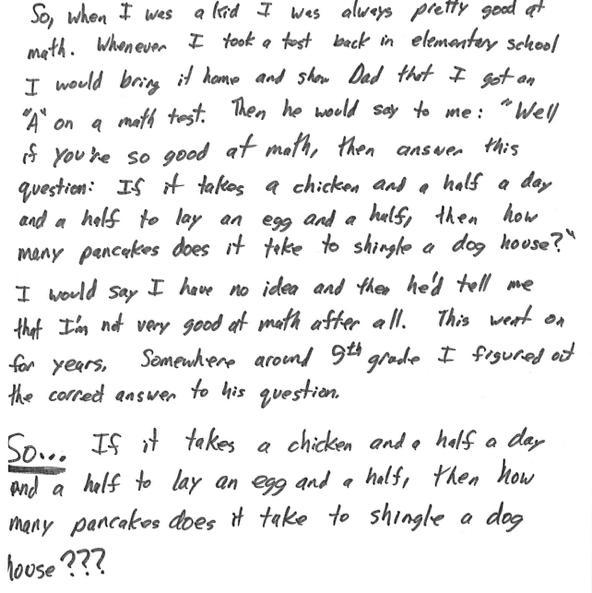 So, when I was a kid I was always pretty good at
math. Whenever I took a test back in elementary school
I would bring it home and show Dad that I got an
"A" on a math test. Then he would say to me: "Well
if you're so good at math, then answer this
question: If it takes a chicken and a half a day
and a half to lay an egg and a half, then how
many pancakes does it take to shingle a dog house?"
I would say I have no idea and then he'd tell me
that I'm not very good at math after all. This went on
for years. Somewhere around 9th grade I figured out
the correct answer to his question.
So... If it takes a chicken and a half a day
and a half to lay an egg and a half, then how
many pancakes does it take to shingle a dog
house???